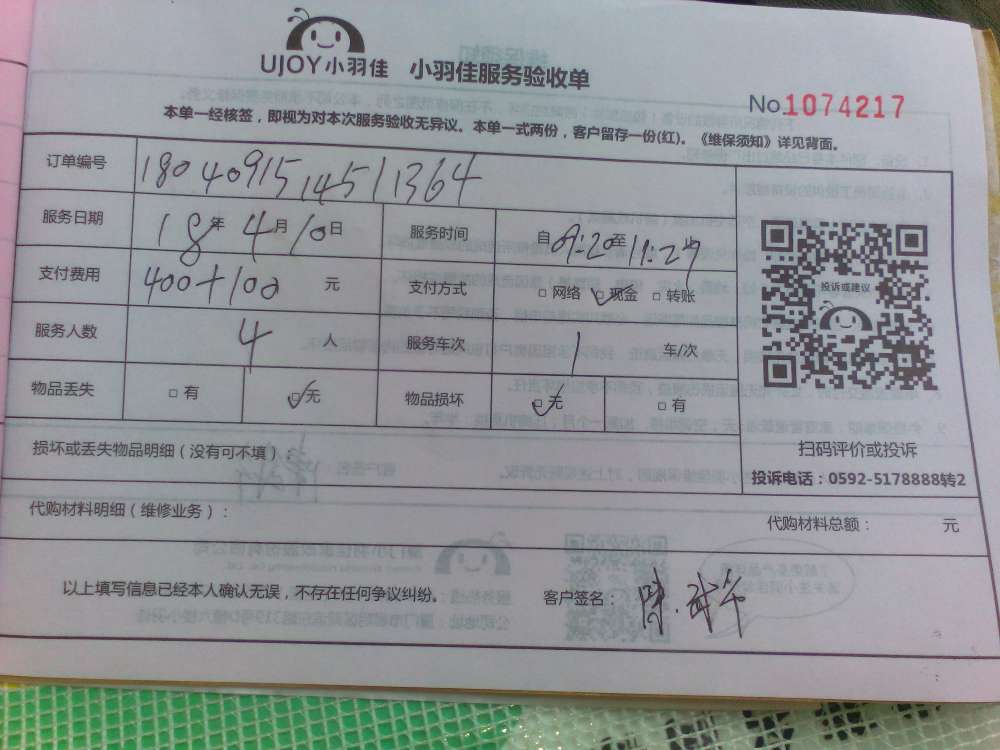 UJOY小羽佳 小羽佳服务验收单
No 1074217
本单一经核签，即视为对本次服务验收无异议。本单一式两份，客户留存一份(红)。《维保须知》详见背面。
订单编号 1804091514511364
服务日期 18年4月10日 服务时间 自09:20至11:27时
支付费用 400+100 元 支付方式 □网络 □现金 □转账
投诉或建议
服务人数 4 人 服务车次 1 车/次
物品丢失 □有 □无 物品损坏 □无 □有
损坏或丢失物品明细（没有可不填）：
扫码评价或投诉
投诉电话：0592-5178888转2
代购材料明细（维修业务）： 代购材料总额： 元
以上填写信息已经本人确认无误，不存在任何争议纠纷。 客户签名：陈